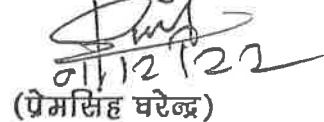 01/12/22
(प्रेमसिंह घरेन्द्र)